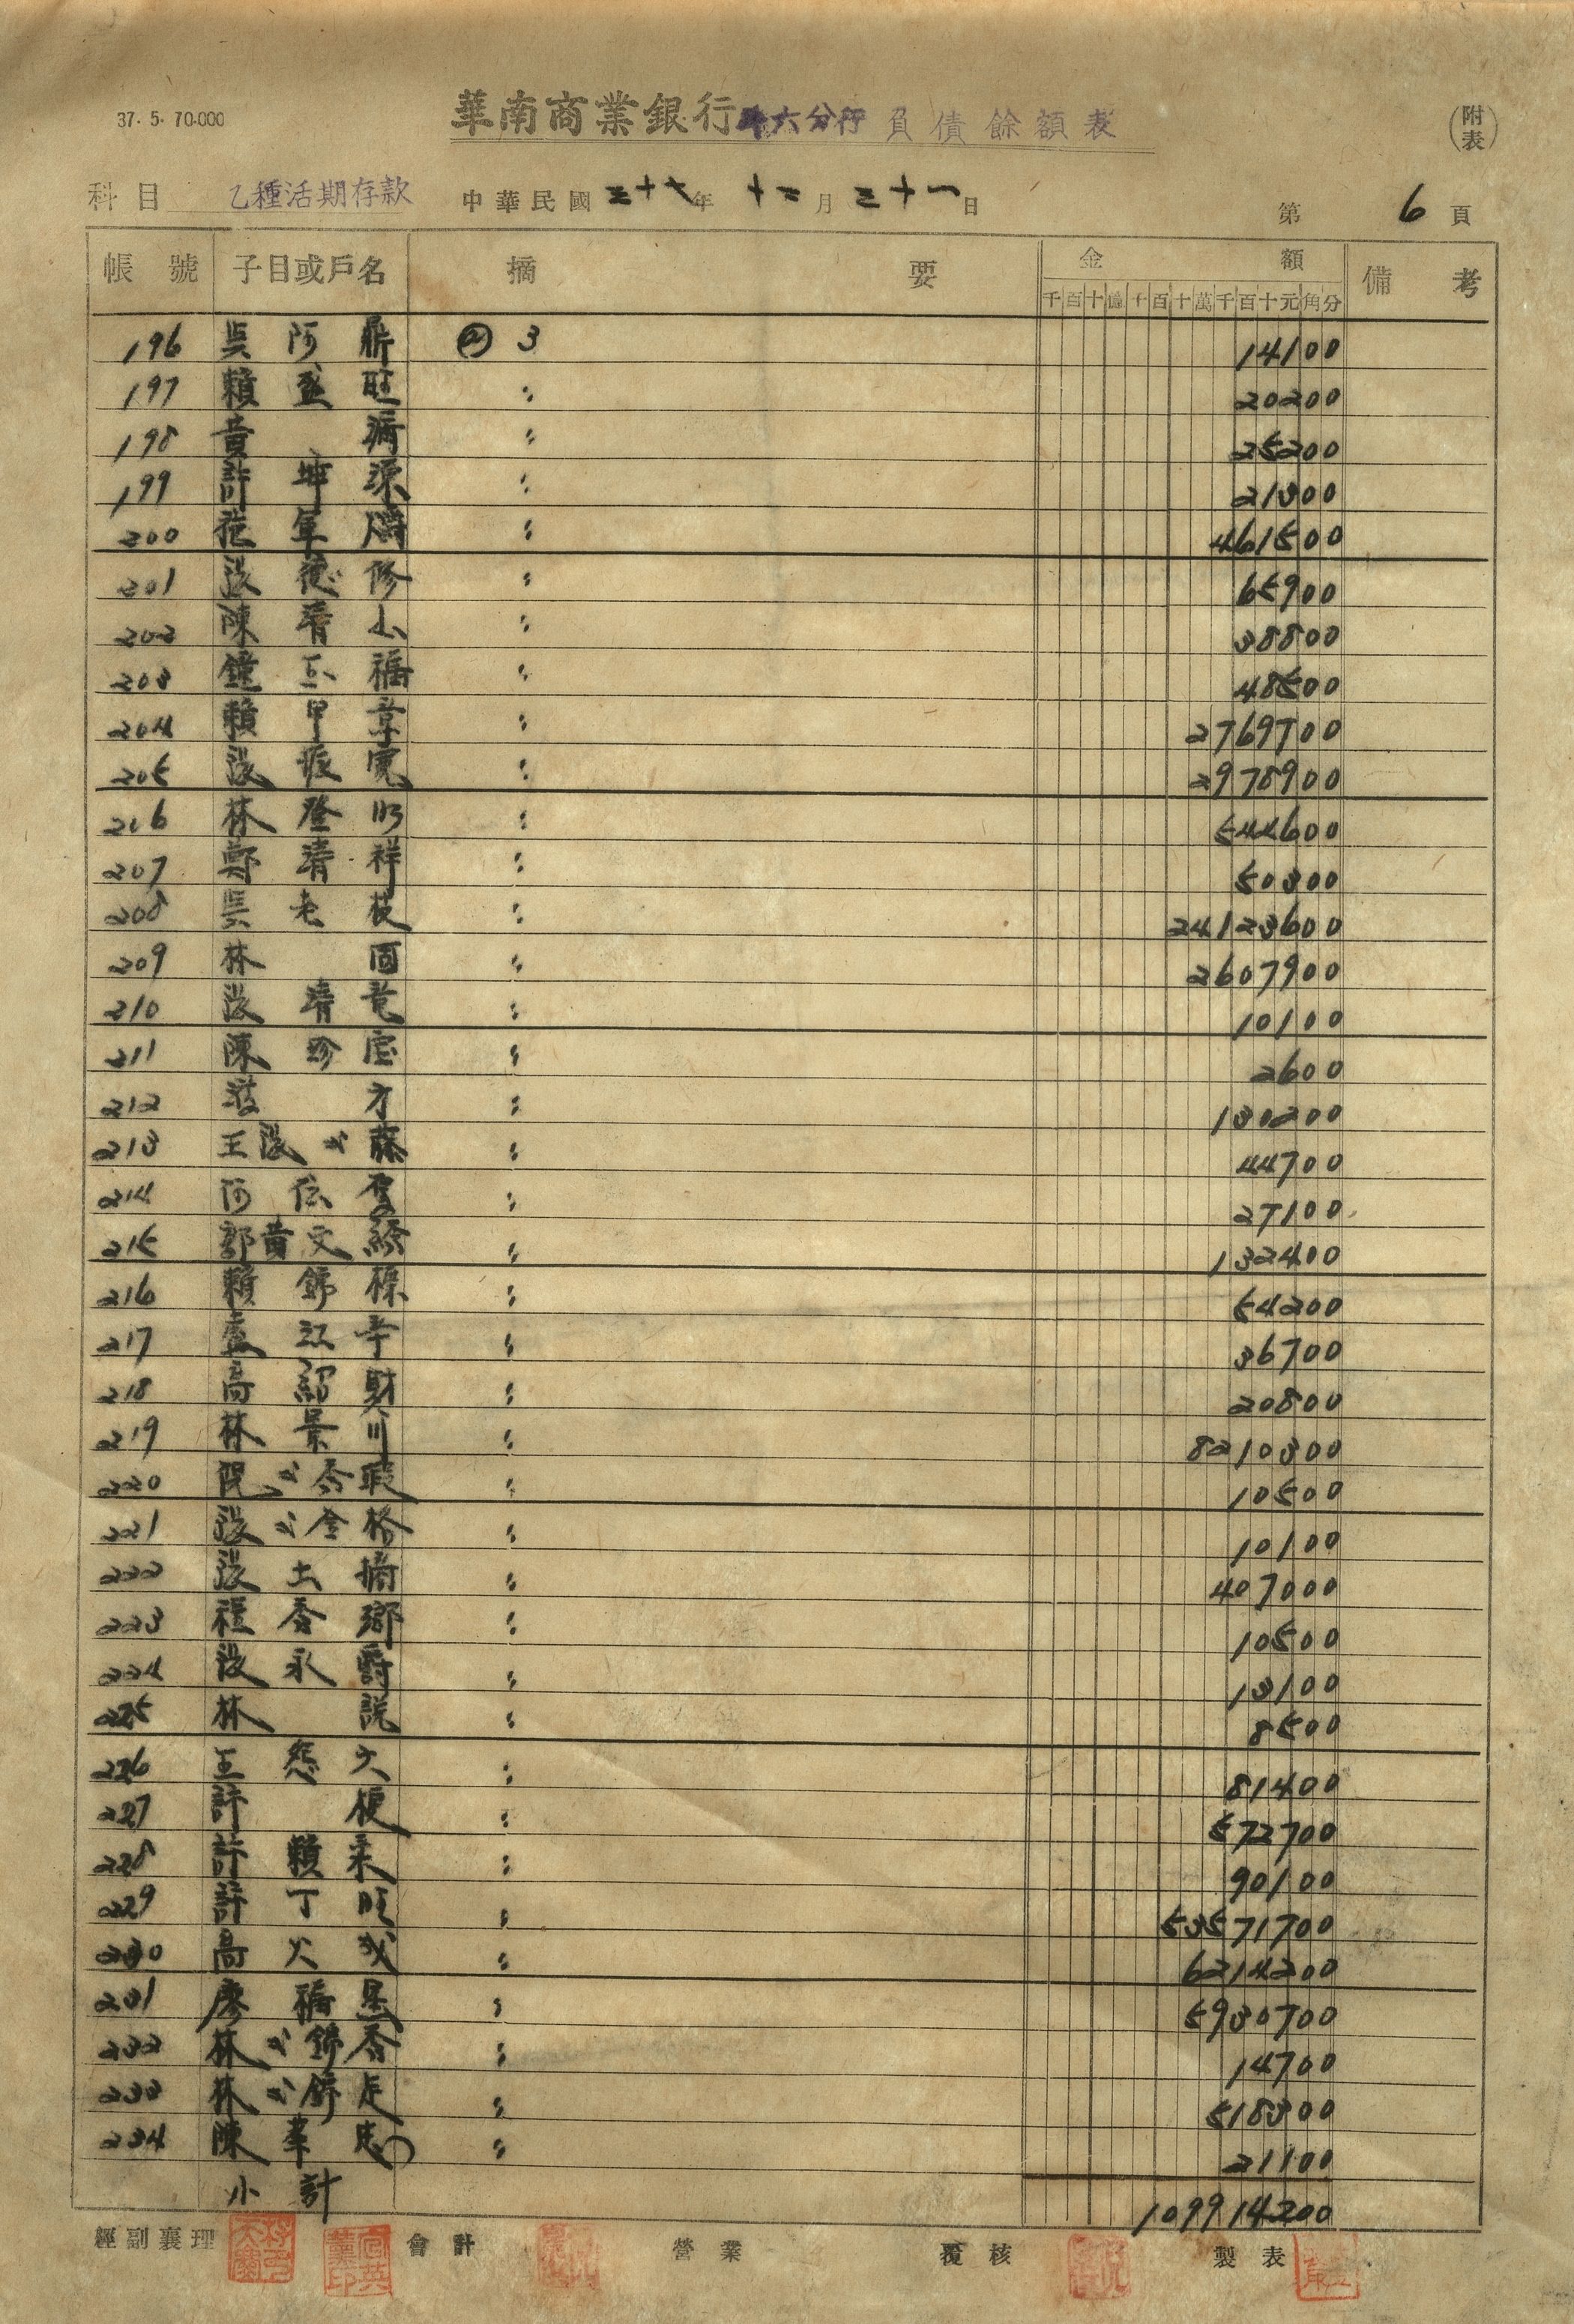 37. 5. 70.000
華南商業銀行斗六分行負債餘額表
(附表)
科目 乙種活期存款 中華民國三十七年十二月三十一日 第6頁
帳號 子目或戶名 摘要 金額 備考
千百十億千百十萬千百十元角分
196 吳阿 3 14100
197 賴盛旺 〃 20200
198 黃 〃 25200
199 許坤源 〃 21300
200 軍 〃 461500
201 張德修 〃 65900
202 陳清山 〃 38800
203 鐘玉福 〃 48500
204 賴甲 〃 2769700
205 張 〃 2978900
206 林登 〃 544600
207 鄭清祥 〃 50300
208 吳老枝 〃 24123600
209 林固 〃 2607900
210 張清 〃 10100
211 陳珍 〃 2600
212 才 〃 130200
213 王張 藤 〃 44700
214 阿 〃 27100
215 郭黃文 〃 132400
216 賴錦標 〃 54200
217 江 〃 36700
218 高紹財 〃 20800
219 林景川 〃 8210300
220 〃 10500
221 張 金格 〃 10100
222 張土 〃 407000
223 程香鄉 〃 10500
224 張永爵 〃 13100
225 林說 〃 8500
226 王 〃 81400
227 許梗 〃 572700
228 許賴 〃 90100
229 許丁旺 〃 53571700
230 高火成 〃 6214200
231 廖福星 〃 5930700
232 林 錦香 〃 14700
233 林 錦 〃 518300
234 陳 〃 21100
小計 109914200
經副襄理 會計 營業 覆核 製表